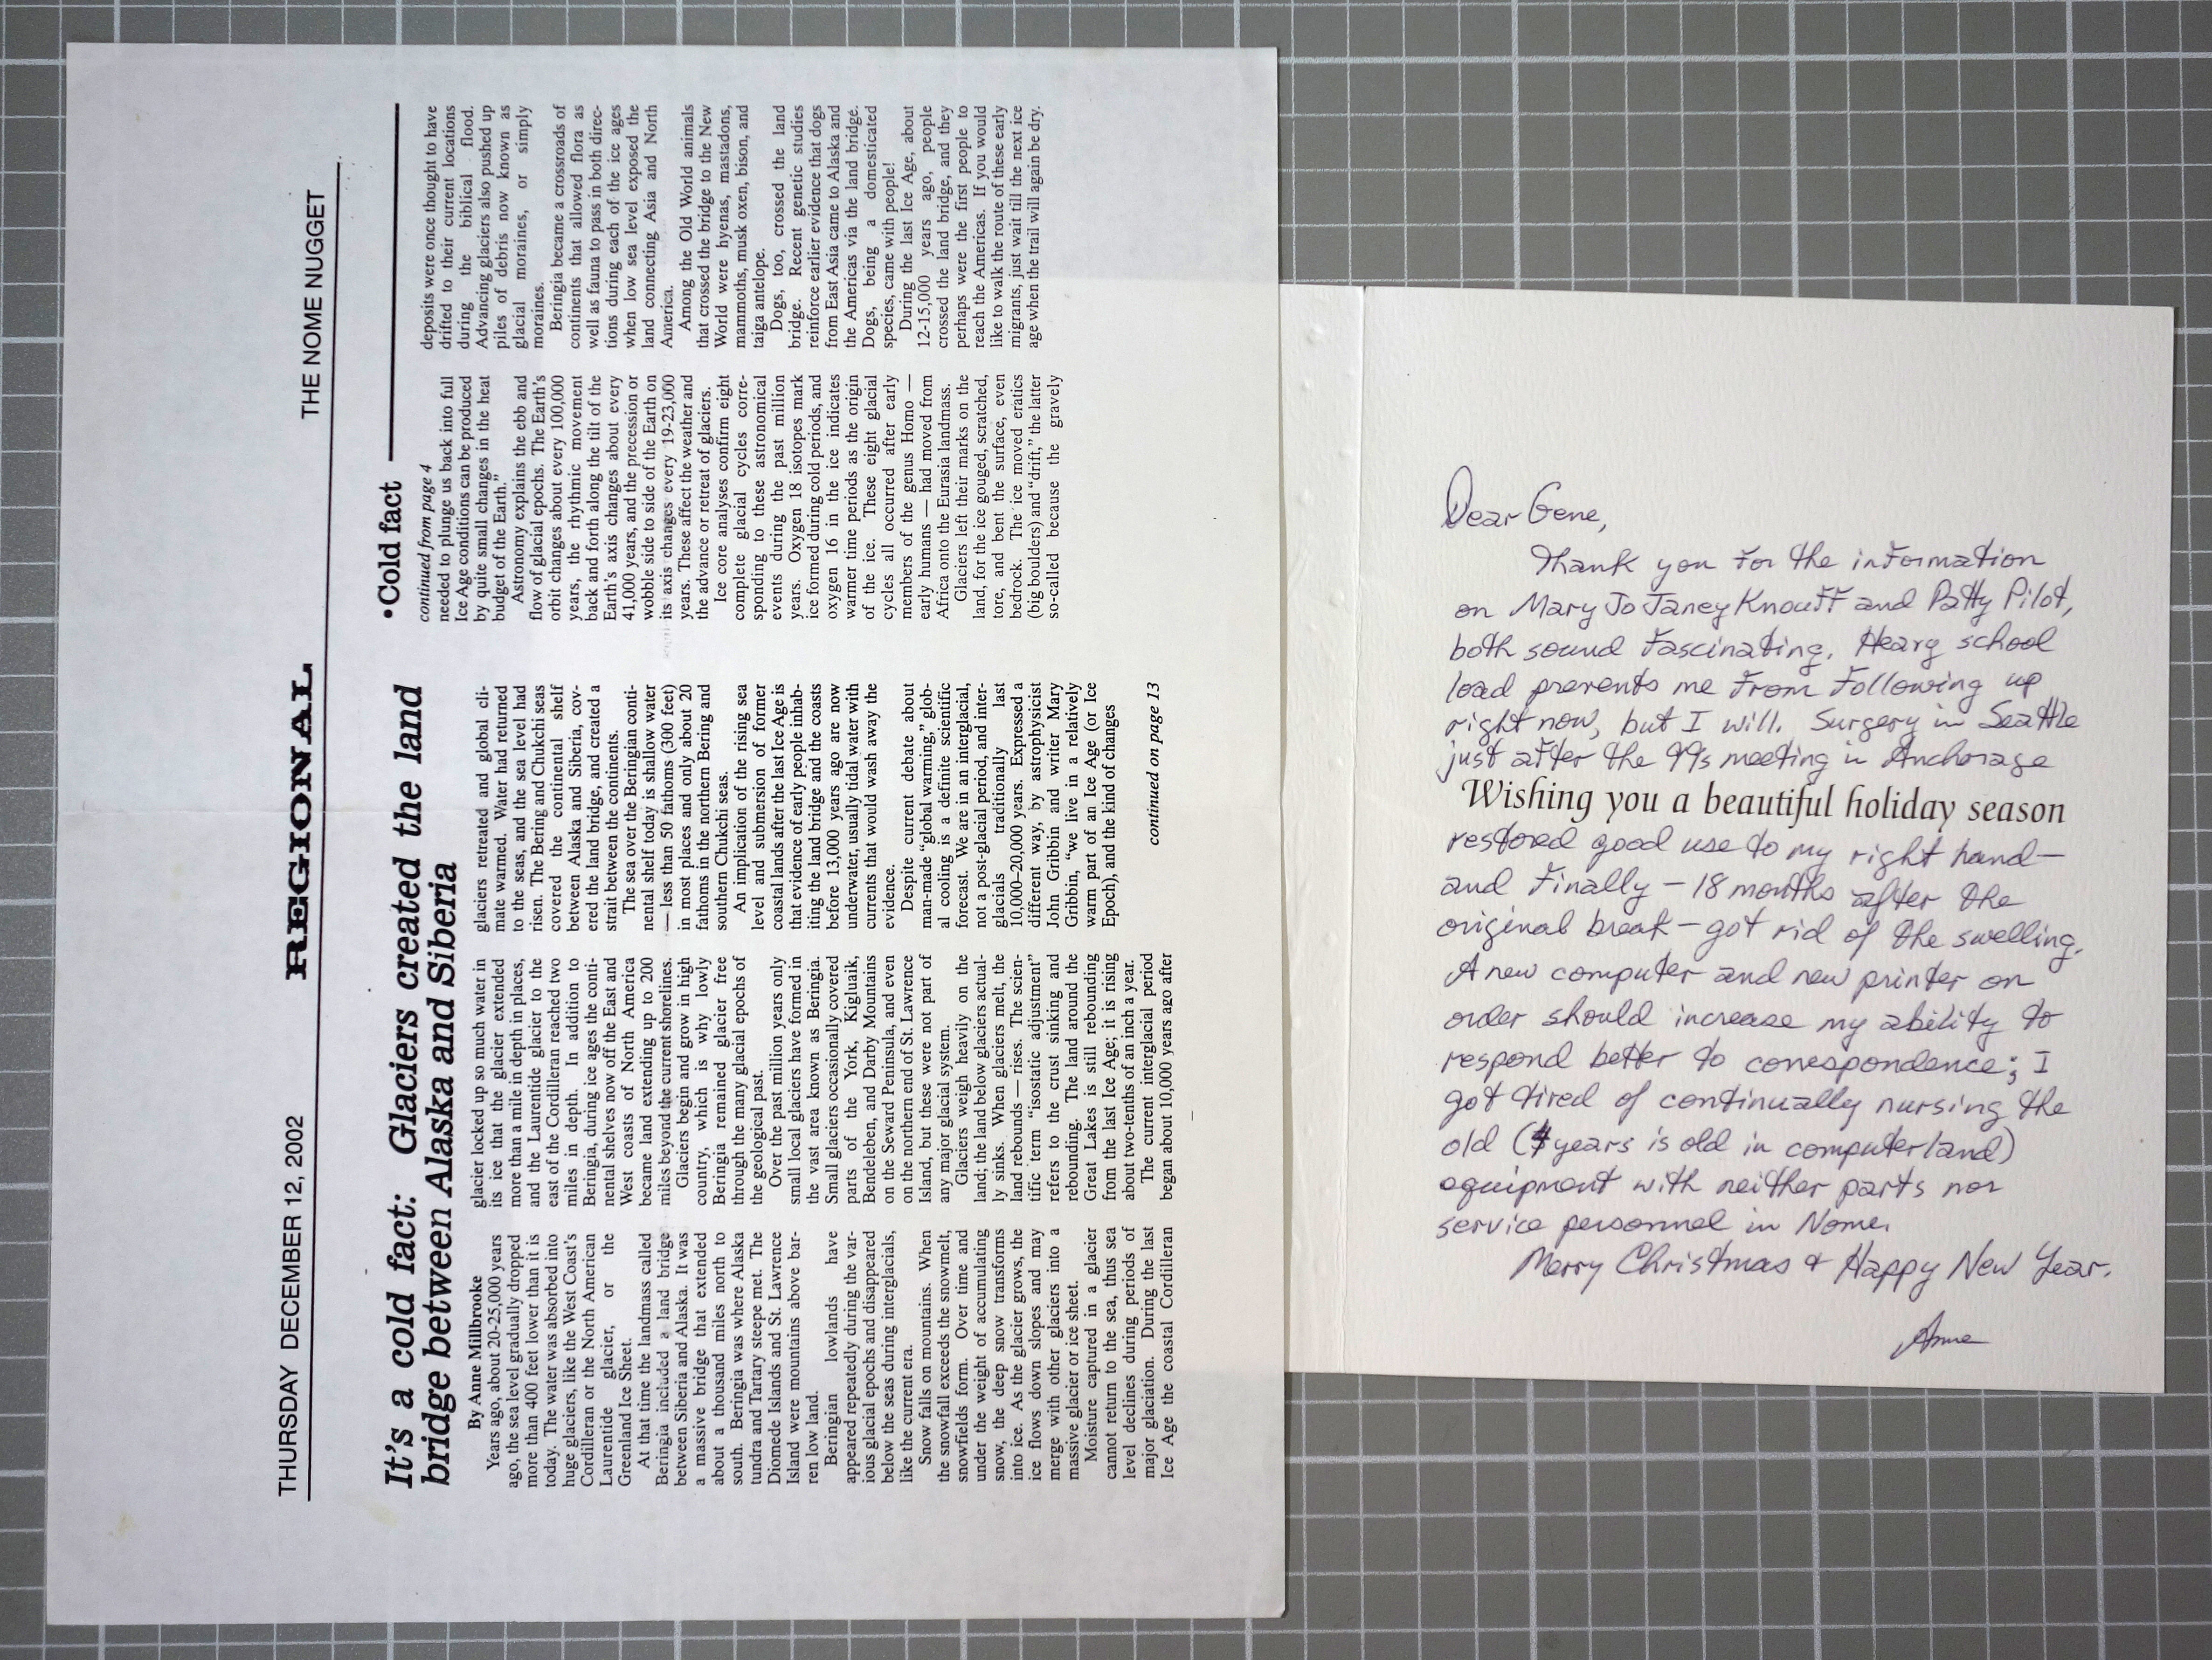 THURSDAY DECEMBER 12, 2002
REGIONAL
THE NOME NUGGET
It's a cold fact: Glaciers created the land
bridge between Alaska and Siberia
By Anne Millbrooke
Years ago, about 20-25,000 years
ago, the sea level gradually dropped
more than 400 feet lower than it is
today. The water was absorbed into
huge glaciers, like the West Coast's
Cordilleran or the North American
Laurentide glacier, or the
Greenland Ice Sheet.
At that time the landmass called
Beringia included a land bridge
between Siberia and Alaska. It was
a massive bridge that extended
about a thousand miles north to
south. Beringia was where Alaska
tundra and Tartary steepe met. The
Diomede Islands and St. Lawrence
Island were mountains above bar-
ren low land.
Beringian lowlands have
appeared repeatedly during the var-
ious glacial epochs and disappeared
below the seas during interglacials,
like the current era.
Snow falls on mountains. When
the snowfall exceeds the snowmelt,
snowfields form. Over time and
under the weight of accumulating
snow, the deep snow transforms
into ice. As the glacier grows, the
ice flows down slopes and may
merge with other glaciers into a
massive glacier or ice sheet.
Moisture captured in a glacier
cannot return to the sea, thus sea
level declines during periods of
major glaciation. During the last
Ice Age the coastal Cordilleran
glacier locked up so much water in
its ice that the glacier extended
more than a mile in depth in places,
and the Laurentide glacier to the
east of the Cordilleran reached two
miles in depth. In addition to
Beringia, during ice ages the conti-
nental shelves now off the East and
West coasts of North America
became land extending up to 200
miles beyond the current shorelines.
Glaciers begin and grow in high
country, which is why lowly
Beringia remained glacier free
through the many glacial epochs of
the geological past.
Over the past million years only
small local glaciers have formed in
the vast area known as Beringia.
Small glaciers occasionally covered
parts of the York, Kigluaik,
Bendeleben, and Darby Mountains
on the Seward Peninsula, and even
on the northern end of St. Lawrence
Island, but these were not part of
any major glacial system.
Glaciers weigh heavily on the
land; the land below glaciers actual-
ly sinks. When glaciers melt, the
land rebounds — rises. The scien-
tific term "isostatic adjustment"
refers to the crust sinking and
rebounding. The land around the
Great Lakes is still rebounding
from the last Ice Age; it is rising
about two-tenths of an inch a year.
The current interglacial period
began about 10,000 years ago after
glaciers retreated and global cli-
mate warmed. Water had returned
to the seas, and the sea level had
risen. The Bering and Chukchi seas
covered the continental shelf
between Alaska and Siberia, cov-
ered the land bridge, and created a
strait between the continents.
The sea over the Beringian conti-
nental shelf today is shallow water
— less than 50 fathoms (300 feet)
in most places and only about 20
fathoms in the northern Bering and
southern Chukchi seas.
An implication of the rising sea
level and submersion of former
coastal lands after the last Ice Age is
that evidence of early people inhab-
iting the land bridge and the coasts
before 13,000 years ago are now
underwater, usually tidal water with
currents that would wash away the
evidence.
Despite current debate about
man-made "global warming," glob-
al cooling is a definite scientific
forecast. We are in an interglacial,
not a post-glacial period, and inter-
glacials traditionally last
10,000–20,000 years. Expressed a
different way, by astrophysicist
John Gribbin and writer Mary
Gribbin, "we live in a relatively
warm part of an Ice Age (or Ice
Epoch), and the kind of changes
continued on page 13
•Cold fact
continued from page 4
needed to plunge us back into full
Ice Age conditions can be produced
by quite small changes in the heat
budget of the Earth."
Astronomy explains the ebb and
flow of glacial epochs. The Earth's
orbit changes about every 100,000
years, the rhythmic movement
back and forth along the tilt of the
Earth's axis changes about every
41,000 years, and the precession or
wobble side to side of the Earth on
its axis changes every 19-23,000
years. These affect the weather and
the advance or retreat of glaciers.
Ice core analyses confirm eight
complete glacial cycles corre-
sponding to these astronomical
events during the past million
years. Oxygen 18 isotopes mark
ice formed during cold periods, and
oxygen 16 in the ice indicates
warmer time periods as the origin
of the ice. These eight glacial
cycles all occurred after early
members of the genus Homo —
early humans — had moved from
Africa onto the Eurasia landmass.
Glaciers left their marks on the
land, for the ice gouged, scratched,
tore, and bent the surface, even
bedrock. The ice moved eratics
(big boulders) and "drift," the latter
so-called because the gravely
deposits were once thought to have
drifted to their current locations
during the biblical flood.
Advancing glaciers also pushed up
piles of debris now known as
glacial moraines, or simply
moraines.
Beringia became a crossroads of
continents that allowed flora as
well as fauna to pass in both direc-
tions during each of the ice ages
when low sea level exposed the
land connecting Asia and North
America.
Among the Old World animals
that crossed the bridge to the New
World were hyenas, mastadons,
mammoths, musk oxen, bison, and
taiga antelope.
Dogs, too, crossed the land
bridge. Recent genetic studies
reinforce earlier evidence that dogs
from East Asia came to Alaska and
the Americas via the land bridge.
Dogs, being a domesticated
species, came with people!
During the last Ice Age, about
12-15,000 years ago, people
crossed the land bridge, and they
perhaps were the first people to
reach the Americas. If you would
like to walk the route of these early
migrants, just wait till the next ice
age when the trail will again be dry.
Dear Gene,
Thank you for the information
on Mary Jo Janey Knouff and Patty Pilot,
both sound fascinating. Heavy school
load prevents me from following up
right now, but I will. Surgery in Seattle
just after the 99s meeting in Anchorage
Wishing you a beautiful holiday season
restored good use to my right hand—
and finally — 18 months after the
original break — got rid of the swelling.
A new computer and new printer on
order should increase my ability to
respond better to correspondence; I
got tired of continually nursing the
old ( years is old in computerland)
equipment with neither parts nor
service personnel in Nome.
Merry Christmas & Happy New Year.
Anne